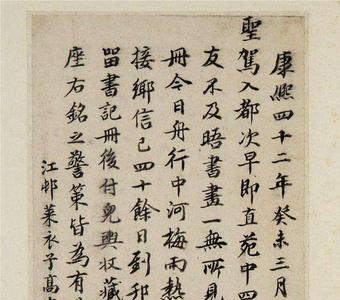 康熙四十二年癸未三月
聖駕入都次早即直苑中四
友不及晤書畫一無所見
冊今日舟行中河梅雨熱
接鄉信已四十餘日到邗
留書記冊後付兒輿收藏
座右銘之警策皆為有
江邨萊衣子高